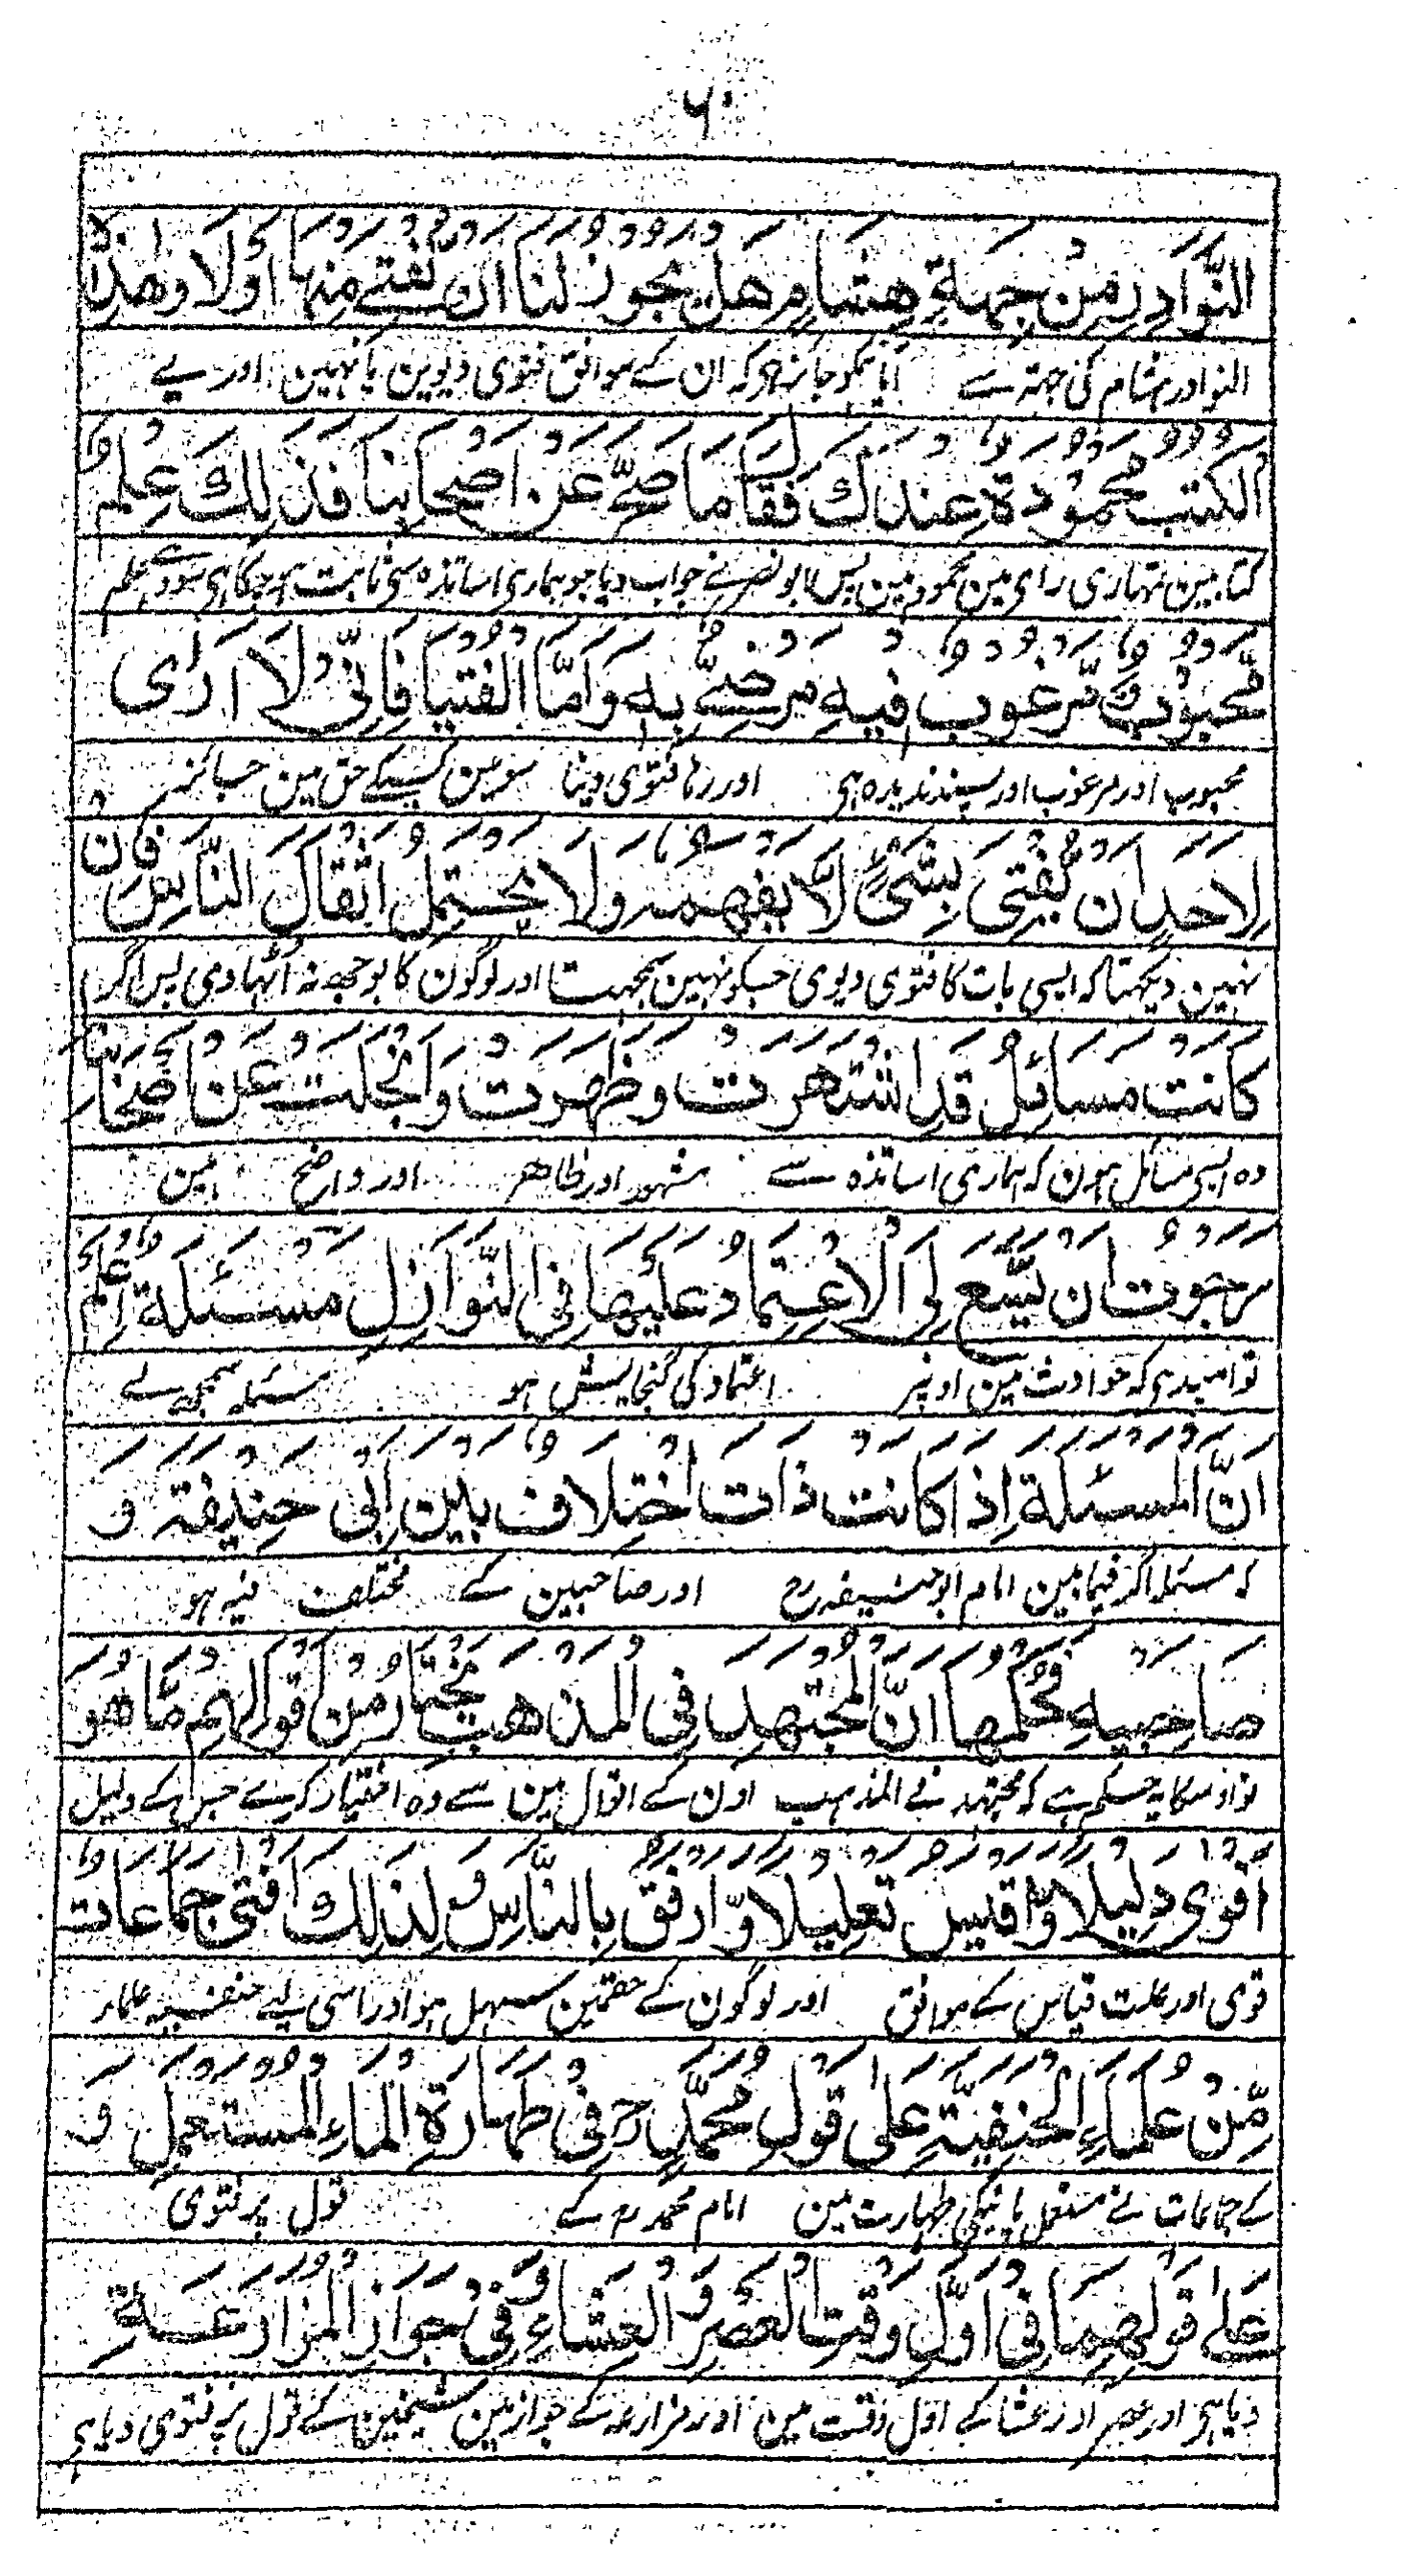 ۶۰
النَّوَادِرِ مِنْ جِهَةِ هِشَامٍ هَلْ يَجُوزُ لَنَا اَنْ نُفْتِيَ مِنْهَا اَوْ لَا وَهٰذِهِ
النوادر ہشام کی جہۃ سے آیا ہمکو جائز ہی کہ ان کے موافق فتوی دیوین یا نہین اور یے
الْكُتُبُ مَحْمُوْدَةٌ عِنْدَكَ فَقَالَ مَا صَحَّ عَنْ اَصْحَابِنَا فَذٰلِكَ عِلْمٌ
کتابین تمہاری رای مین محمود ہین پس ابو نصر نے جواب دیا جو ہماری اساتذہ سی ثابت ہو چکا ہی سو وے علم
مَّحْبُوْبٌ مَّرْغُوْبٌ فِيْهِ مَرْضِيٌّ بِهٖ وَاَمَّا الْفُتْيَا فَاِنِّيْ لَا اَرٰى
محبوب اور مرغوب اور پسندیدہ ہی اور رہا فتوی دینا سو مین کسیکے حق مین جائز
لِاَحَدٍ اَنْ يُّفْتِيَ بِشَيْءٍ لَّا يَفْهَمُهٗ وَلَا يَحْتَمِلُ اَثْقَالَ النَّاسِ فَاِنْ
نہین دیکھتا کہ ایسی بات کا فتوی دیوی جسکو نہین سمجہتا اور لوگون کا بوجھہ نہ اٹہادی پس اگر
كَانَتْ مَسَائِلُ قَدِ اشْتَهَرَتْ وَظَهَرَتْ وَانْجَلَتْ عَنْ اَصْحَابِنَا
وہ ایسی مسائل ہون کہ ہماری اساتذہ سے مشہور اور ظاہر اور واضح ہین
رَجَوْتُ اَنْ يَّسَعَ لِيَ الْاِعْتِمَادُ عَلَيْهَا فِى النَّوَازِلِ مَسْئَلَةٌ اِعْلَمْ
تو امید ہی کہ حوادث مین اونپر اعتماد کی گنجایش ہو مسئلہ سمجھہ لے
اَنَّ الْمَسْئَلَةَ اِذَا كَانَتْ ذَاتَ اخْتِلَافٍ بَيْنَ اَبِيْ حَنِيْفَةَ وَ
کہ مسئلہ اگر فیمابین امام ابو حنیفہ رح اور صاحبین کے مختلف فیہ ہو
صَاحِبَيْهِ فَحُكْمُهَا اَنَّ الْمُجْتَهِدَ فِى الْمَذْهَبِ يَخْتَارُ مِنْ اَقْوَالِهِمْ مَّا هُوَ
تو اوسکا یہ حکم ہے کہ مجتہد فے المذہب اون کے اقوال مین سے وہ اختیار کرے جسکے دلیل
اَقْوٰى دَلِيْلًا وَّاَقْيَسُ تَعْلِيْلًا وَّاَرْفَقُ بِالنَّاسِ وَلِذٰلِكَ اَفْتٰى جَمَاعَاتٌ
قوی اور علت قیاس کے موافق اور لوگون کے حقمین سہل ہو اور اسی لیے حنفیہ علماء
مِّنْ عُلَمَاءِ الْحَنَفِيَّةِ عَلٰى قَوْلِ مُحَمَّدٍ رح فِيْ طَهَارَةِ الْمَاءِ الْمُسْتَعْمَلِ وَ
کے جماعات نے مستعمل پانیکی طہارت مین امام محمد رح کے قول پر فتوی
عَلٰى قَوْلِهِمَا فِىْ اَوَّلِ وَقْتِ الْعَصْرِ وَ الْعِشَاءِ وَفِىْ جَوَازِ الْمُزَارَعَةِ
دیا ہی اور عصر اور عشا کے اول وقت مین اور مزارعہ کے جواز مین کے قول پر فتوی دیا ہی